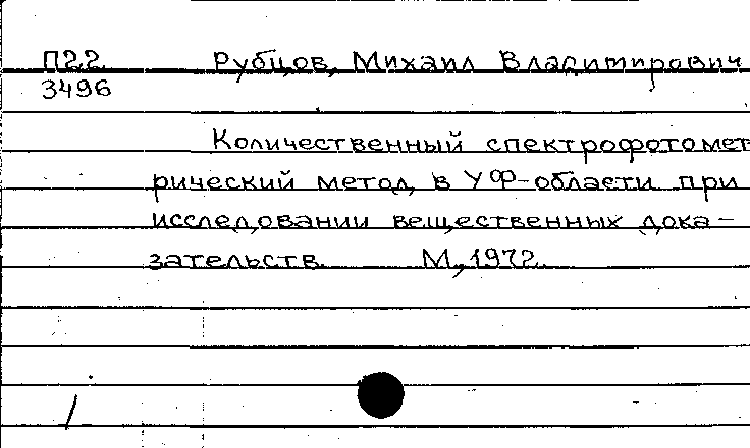 П22 Рубцов, Михаил Владимирович
3496
Количественный спектрофотомет
рический метод в УФ-области при
исследовании вещественных дока-
зательств. М, 1972.